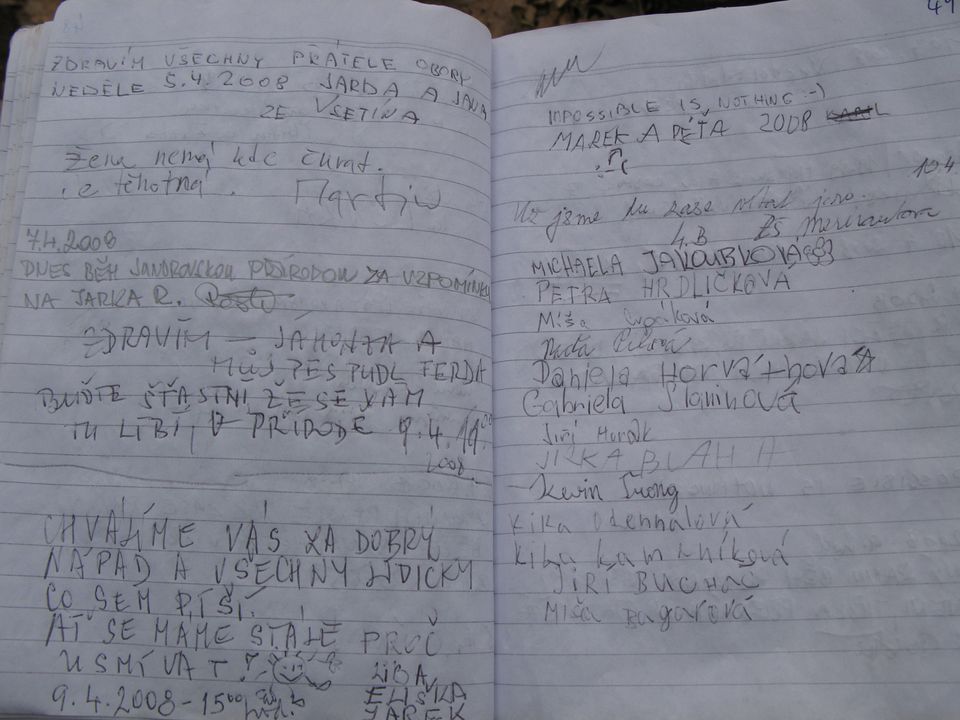 ZDRAVÍM VŠECHNY PŘÁTELE OBORY
NEDĚLE 5.4.2008 JARDA A JANA
ZE VSETÍNA
Žena nemá kde čurat.
je těhotná. Martin
7.4.2008
DNES BĚH JANDROVSKOU PŘÍRODOU ZA VZPOMÍNKU
NA JARKA R.
ZDRAVÍM — JÁ HONZA A
MŮJ PES PUDL FERDA
BUĎTE ŠŤASTNÍ, ŽE SE VÁM
TU LÍBÍ, V PŘÍRODĚ 9.4.
2008
CHVÁLÍME VÁS ZA DOBRÝ
NÁPAD A VŠECHNY LIDIČKY
CO SEM PÍŠÍ.
AŤ SE MÁME STÁLE PROČ
USMÍVAT!
LIBA,
9.4.2008 - 15⁰⁰ hod. ELIŠKA
JAREK
49
IMPOSSIBLE IS NOTHING :-)
MAREK A PÉŤA 2008
10.4
Už jsme tu zase
4.B ZŠ
MICHAELA JAKOUBKOVÁ
PETRA HRDLIČKOVÁ
Míša
Daniela Horváthová
Gabriela Slaninová
Jiří Horák
JIRKA BLAHA
Kevin Truong
Kika Odehnalová
Kika kameníková
JIŘÍ BUCHAČ
Míša Bagarová